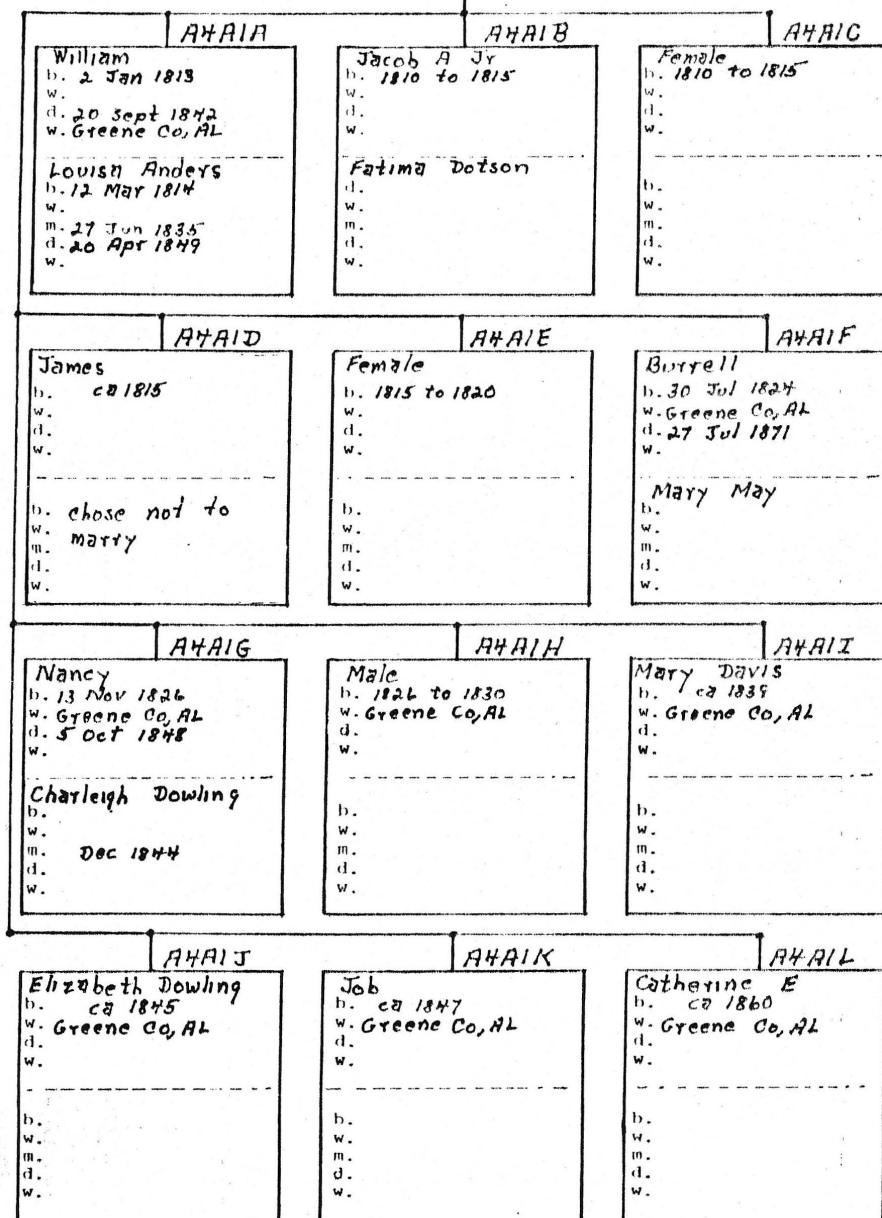 A4A1A
William
b. 2 Jan 1813
w.
d. 20 Sept 1842
w. Greene Co, AL
Louisa Anders
b. 12 Mar 1814
w.
m. 27 Jun 1835
d. 20 Apr 1849
w.
A4A1B
Jacob A Jr
b. 1810 to 1815
w.
d.
w.
Fatima Dotson
d.
w.
m.
d.
w.
A4A1C
Female
b. 1810 to 1815
w.
d.
w.
b.
w.
m.
d.
w.
A4A1D
James
b. ca 1815
w.
d.
w.
b. chose not to
w.
m. marry
d.
w.
A4A1E
Female
b. 1815 to 1820
w.
d.
w.
b.
w.
m.
d.
w.
A4A1F
Burrell
b. 30 Jul 1824
w. Greene Co, AL
d. 27 Jul 1871
w.
Mary May
b.
w.
m.
d.
w.
A4A1G
Nancy
b. 13 Nov 1826
w. Greene Co, AL
d. 5 Oct 1848
w.
Charleigh Dowling
b.
w.
m. Dec 1844
d.
w.
A4A1H
Male
b. 1826 to 1830
w. Greene Co, AL
d.
w.
b.
w.
m.
d.
w.
A4A1I
Mary Davis
b. ca
w. Greene Co, AL
d.
w.
b.
w.
m.
d.
w.
A4A1J
Elizabeth Dowling
b. ca 1845
w. Greene Co, AL
d.
w.
b.
w.
m.
d.
w.
A4A1K
Job
b. ca 1847
w. Greene Co, AL
d.
w.
b.
w.
m.
d.
w.
A4A1L
Catherine E
b. ca 1860
w. Greene Co, AL
d.
w.
b.
w.
m.
d.
w.